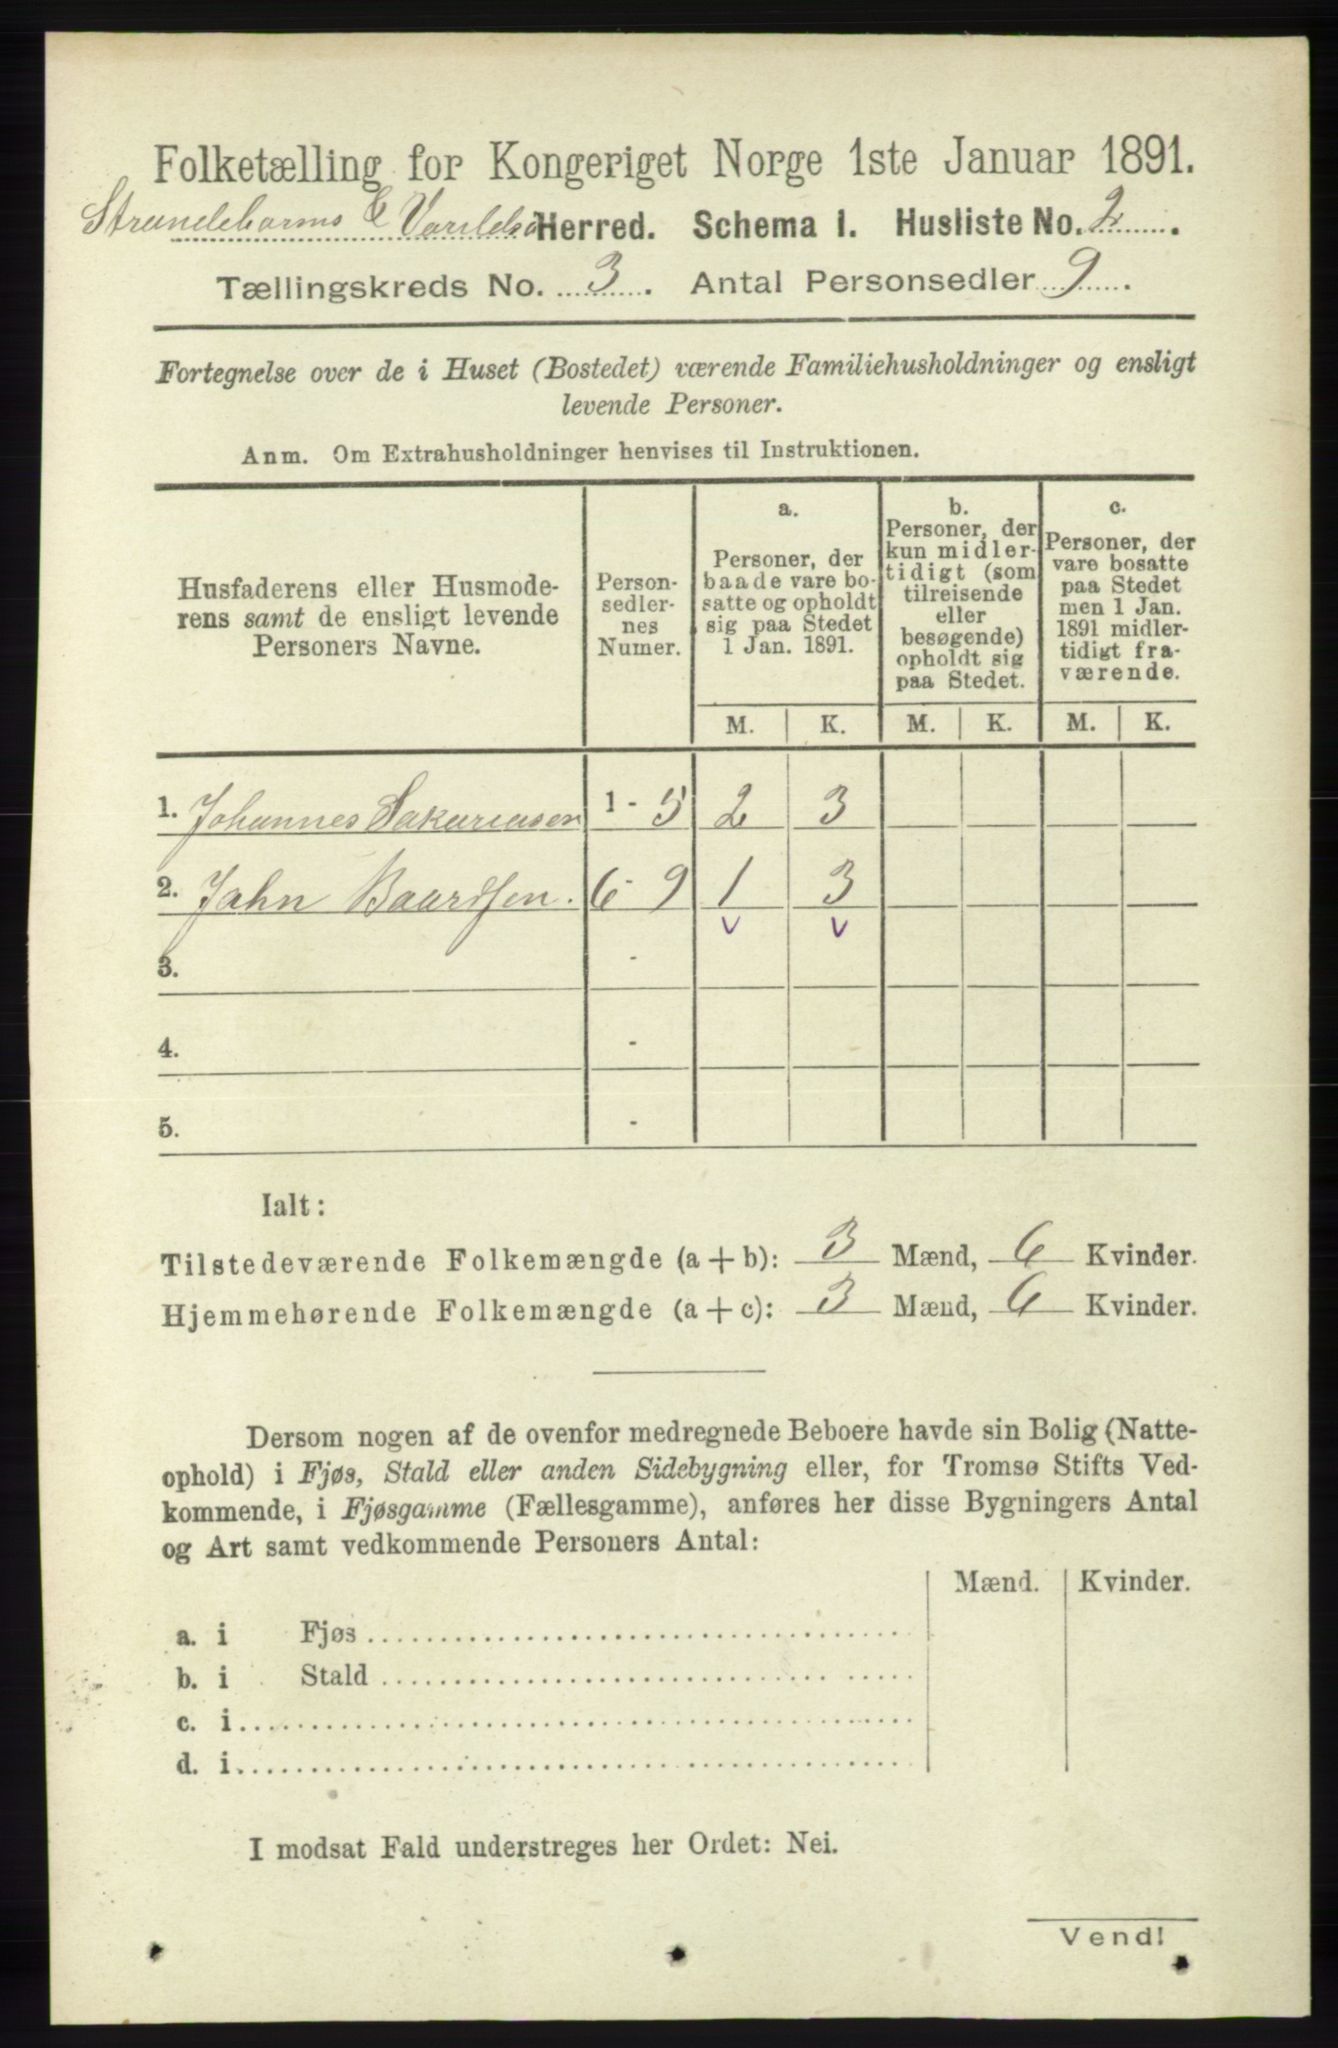 Folketælling for Kongeriget Norge 1ste Januar 1891.
Strandebarms & Varildsø Herred. Schema I. Husliste No. 2
Tællingskreds No. 3. Antal Personsedler 9.
Fortegnelse over de i Huset (Bostedet) værende Familiehusholdninger og ensligt
levende Personer.
Anm. Om Extrahusholdninger henvises til Instruktionen.
Husfaderens eller Husmode-
rens samt de ensligt levende
Personers Navne.
Person-
sedler-
nes
Numer.
a.
Personer, der
baade vare bo-
satte og opholdt
sig paa Stedet
1 Jan. 1891.
b.
Personer, der
kun midler-
tidigt (som
tilreisende
eller
besøgende)
opholdt sig
paa Stedet.
c.
Personer, der
vare bosatte
paa Stedet
men 1 Jan.
1891 midler-
tidigt fra-
værende.
M. K. M. K. M. K.
1. Johannes Sakariasen 1 - 5 2 3
2. Jahn Baardsen. 6 - 9 1 3
v v
3. -
4. -
5. -
Ialt:
Tilstedeværende Folkemængde (a + b): 3 Mænd, 6 Kvinder.
Hjemmehørende Folkemængde (a + c): 3 Mænd, 6 Kvinder.
Dersom nogen af de ovenfor medregnede Beboere havde sin Bolig (Natte-
ophold) i Fjøs, Stald eller anden Sidebygning eller, for Tromsø Stifts Ved-
kommende, i Fjøsgamme (Fællesgamme), anføres her disse Bygningers Antal
og Art samt vedkommende Personers Antal:
Mænd. Kvinder.
a. i Fjøs
b. i Stald
c. i
d. i
I modsat Fald understreges her Ordet: Nei.
Vend!